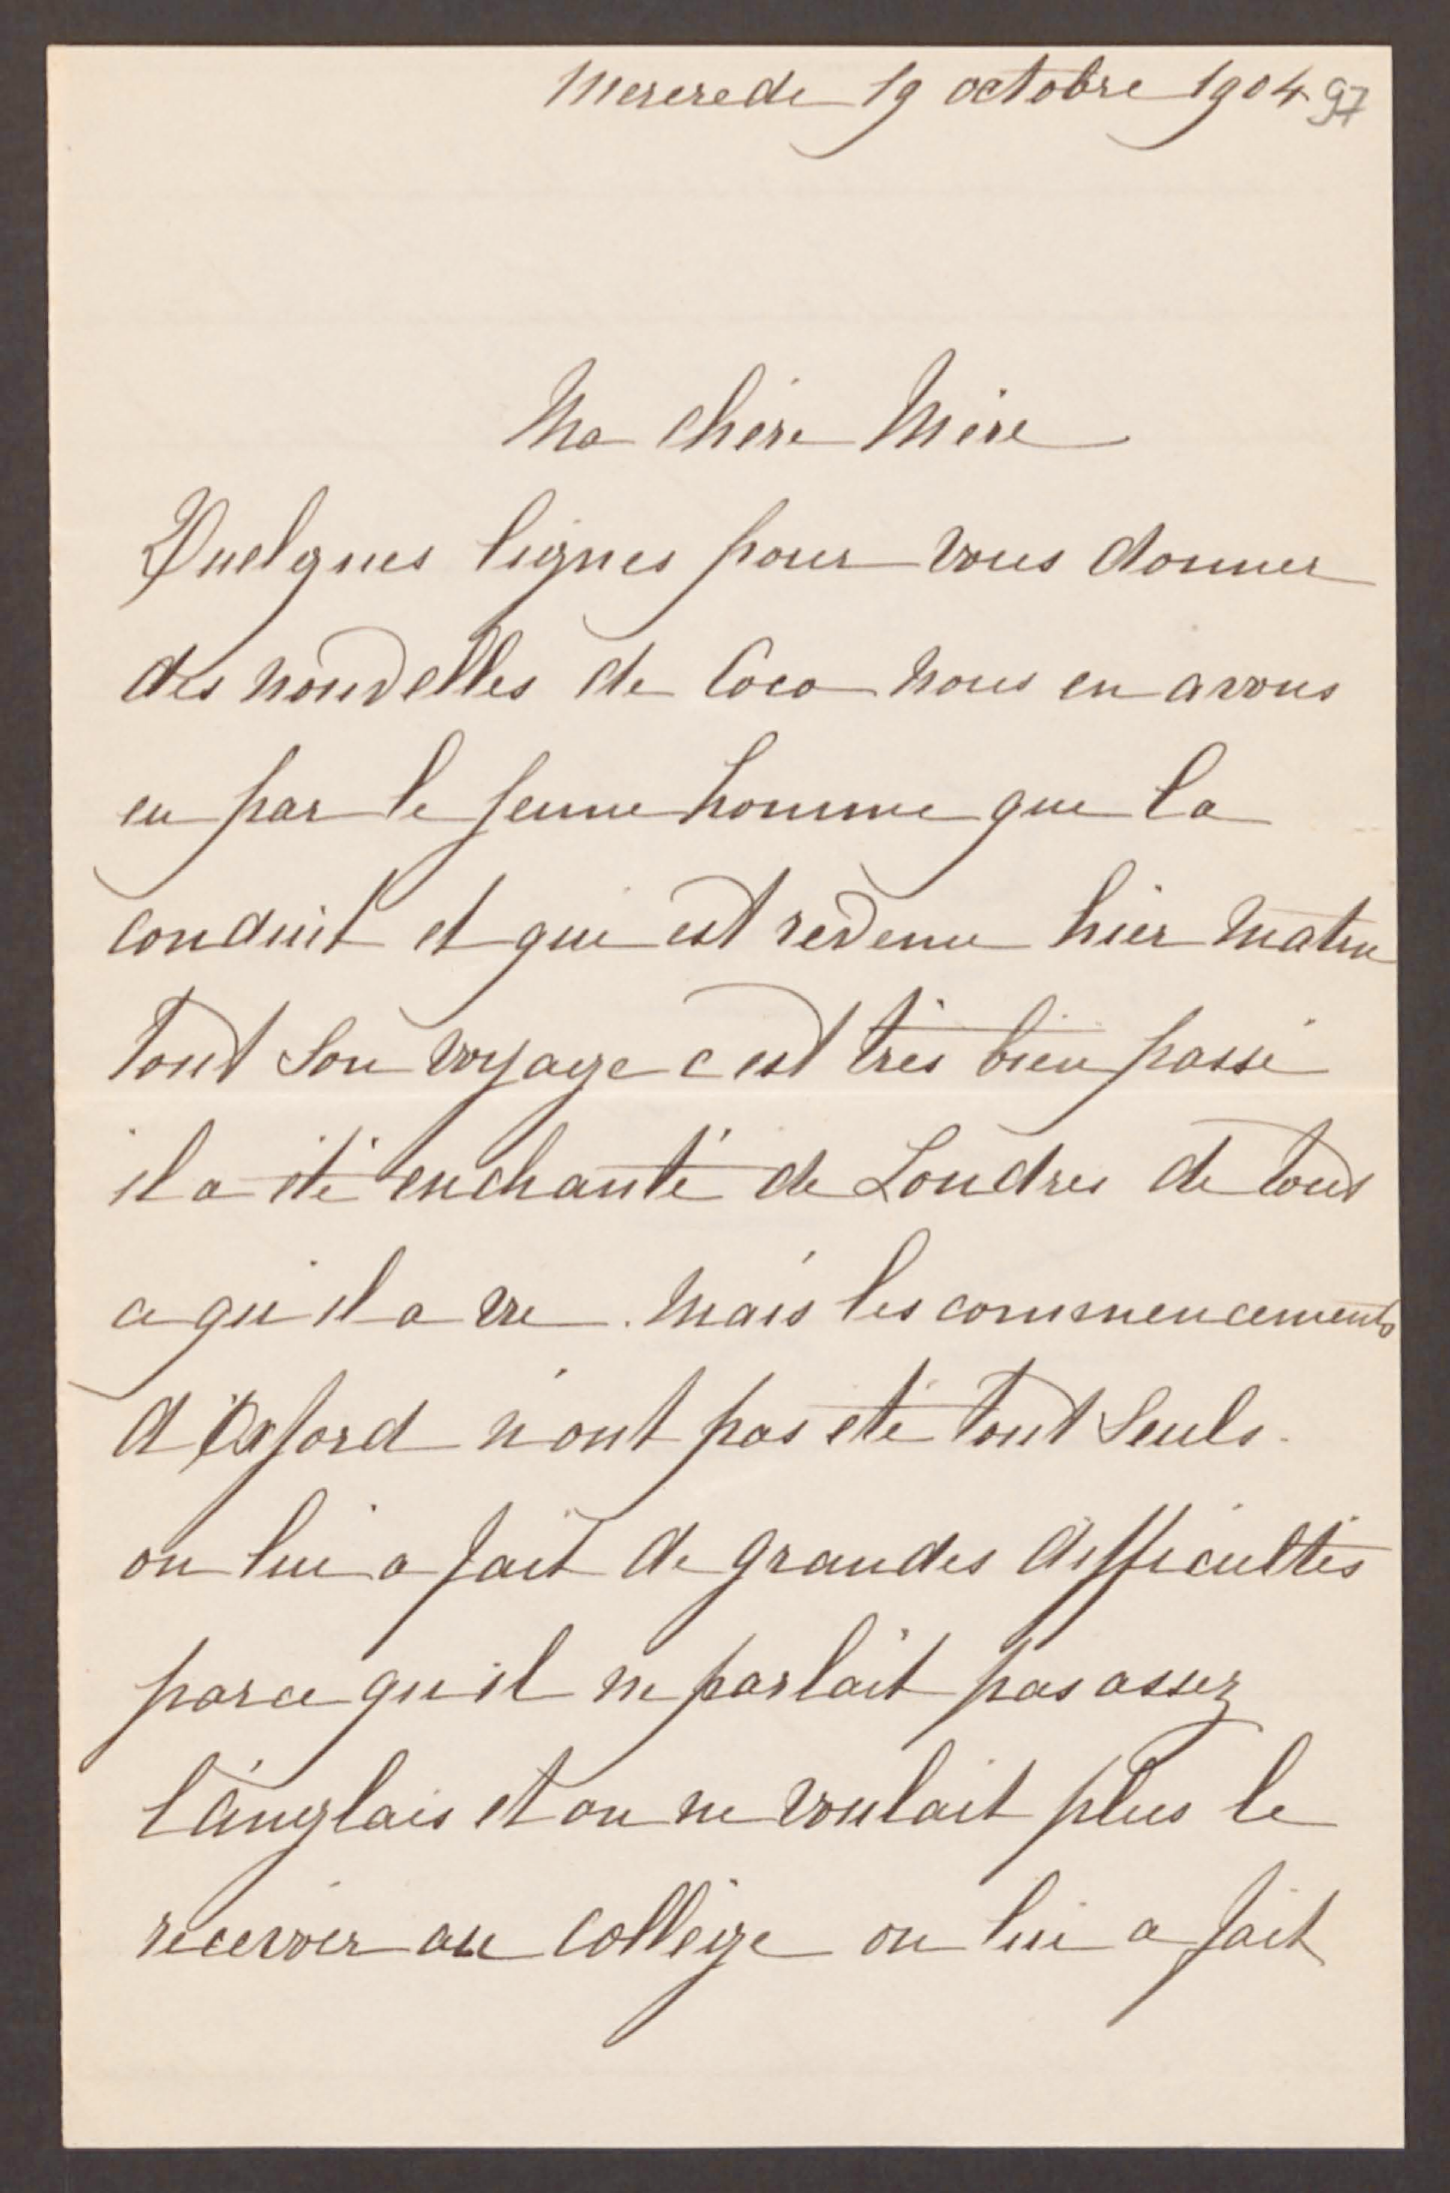 Mercredi 19 octobre 1904 97
Ma chère Mère
Quelques lignes pour vous donner
des nouvelles de Coco nous en avons
eu par le jeune homme que la
conduit et qui est revenu hier matin
Tout son voyage c est très bien passé
il a été enchanté de Londres de tout
ce qu il a vu. Mais les commencements
d Oxford n ont pas eté tout seuls.
on lui a fait de grandes difficultés
parce qu il ne parlait pas assez
l'anglais et on ne voulait plus le
recevoir au collège on lui a fait